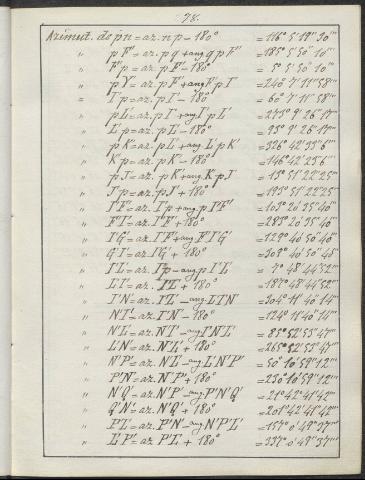 78.
Azimut. de pn = az. np − 180° = 116° 5' 19" 30'''
" pF' = az. pq + ang qpF' = 185° 5' 50" 10'''
" F'p = az. pF' − 180° = 5° 5' 50" 10'''
" pI' = az. pF' + ang F'pI' = 240° 7' 11" 58'''
" I'p = az. pI' − 180° = 60° 7' 11" 58'''
" pL' = az. pI' + ang I'pL' = 273° 9' 26" 17'''
" L'p = az. pL' − 180° = 93° 9' 26" 17'''
" pK = az. pL' + ang L'pK' = 326° 42' 33" 6'''
" K'p = az. pK' − 180° = 146° 42' 23" 6'''
" pJ = az. pK' + ang K'pJ = 13° 51' 22" 25'''
" J'p = az. pJ' + 180° = 193° 51' 22" 25'''
" I'F' = az. I'p + ang pI'F' = 103° 20' 35" 40'''
" F'I' = az. I'F' + 180° = 283° 20' 35" 40'''
" I'G' = az. I'F' + ang F'I'G' = 129° 40' 50" 40'''
" G'I' = az. I'G' + 180° = 309° 40' 50" 40'''
" I'L' = az. I'p − ang pI'L' = 7° 48' 44" 52'''
" L'I' = az. I'L' + 180° = 187° 48' 44" 52'''
" I'N' = az. I'L' − ang L'I'N' = 304° 11' 40" 14'''
" N'I' = az. I'N' − 180° = 124° 11' 40" 14'''
" N'L' = az. N'I' − ang I'N'L' = 85° 52' 53" 47'''
" L'N' = az. N'L' + 180° = 265° 52' 53" 47'''
" N'P' = az. N'L' − ang L'N'P' = 50° 10' 59" 12'''
" P'N' = az. N'P' + 180° = 230° 10' 59" 12'''
" N'Q' = az. N'P' − ang P'N'Q' = 21° 42' 41" 42'''
" Q'N' = az. N'Q' + 180° = 201° 42' 41" 42'''
" P'L' = az. P'N' − ang N'P'L' = 157° 0' 49" 37'''
" L'P' = az. P'L' + 180° = 337° 0' 49" 37'''